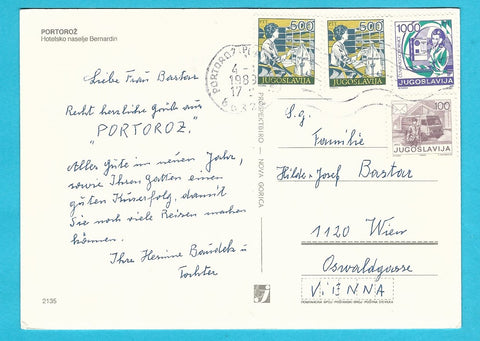 PORTOROŽ
Hotelsko naselje Bernardin
Liebe Frau Bastar
Recht herzliche Grüße aus
"PORTOROZ."
Alles Gute im neuen Jahr,
sowie Ihren Gatten einen
guten Kurerfolg, damit
Sie noch viele Reisen machen
können.
Ihre Hermine u
Tochter
2135
500
JUGOSLAVIJA
500
JUGOSLAVIJA
1000
JUGOSLAVIJA
100
JUGOSLAVIJA
PORTOROŽ
4
1989
17
PROJEKTBIRO - NOVA GORICA
S.g.
Familie
Hilde u Josef Bastar
1120 Wien
Oswaldgasse
VIENNA